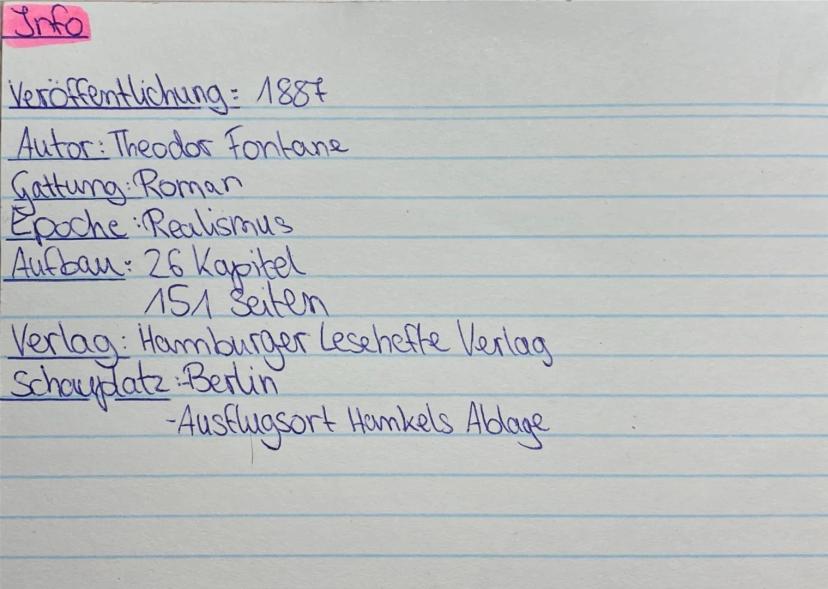 Info
Veröffentlichung: 1887
Autor: Theodor Fontane
Gattung: Roman
Epoche: Realismus
Aufbau: 26 Kapitel
151 Seiten
Verlag: Hamburger Lesehefte Verlag
Schauplatz: -Berlin
-Ausflugsort Hankels Ablage